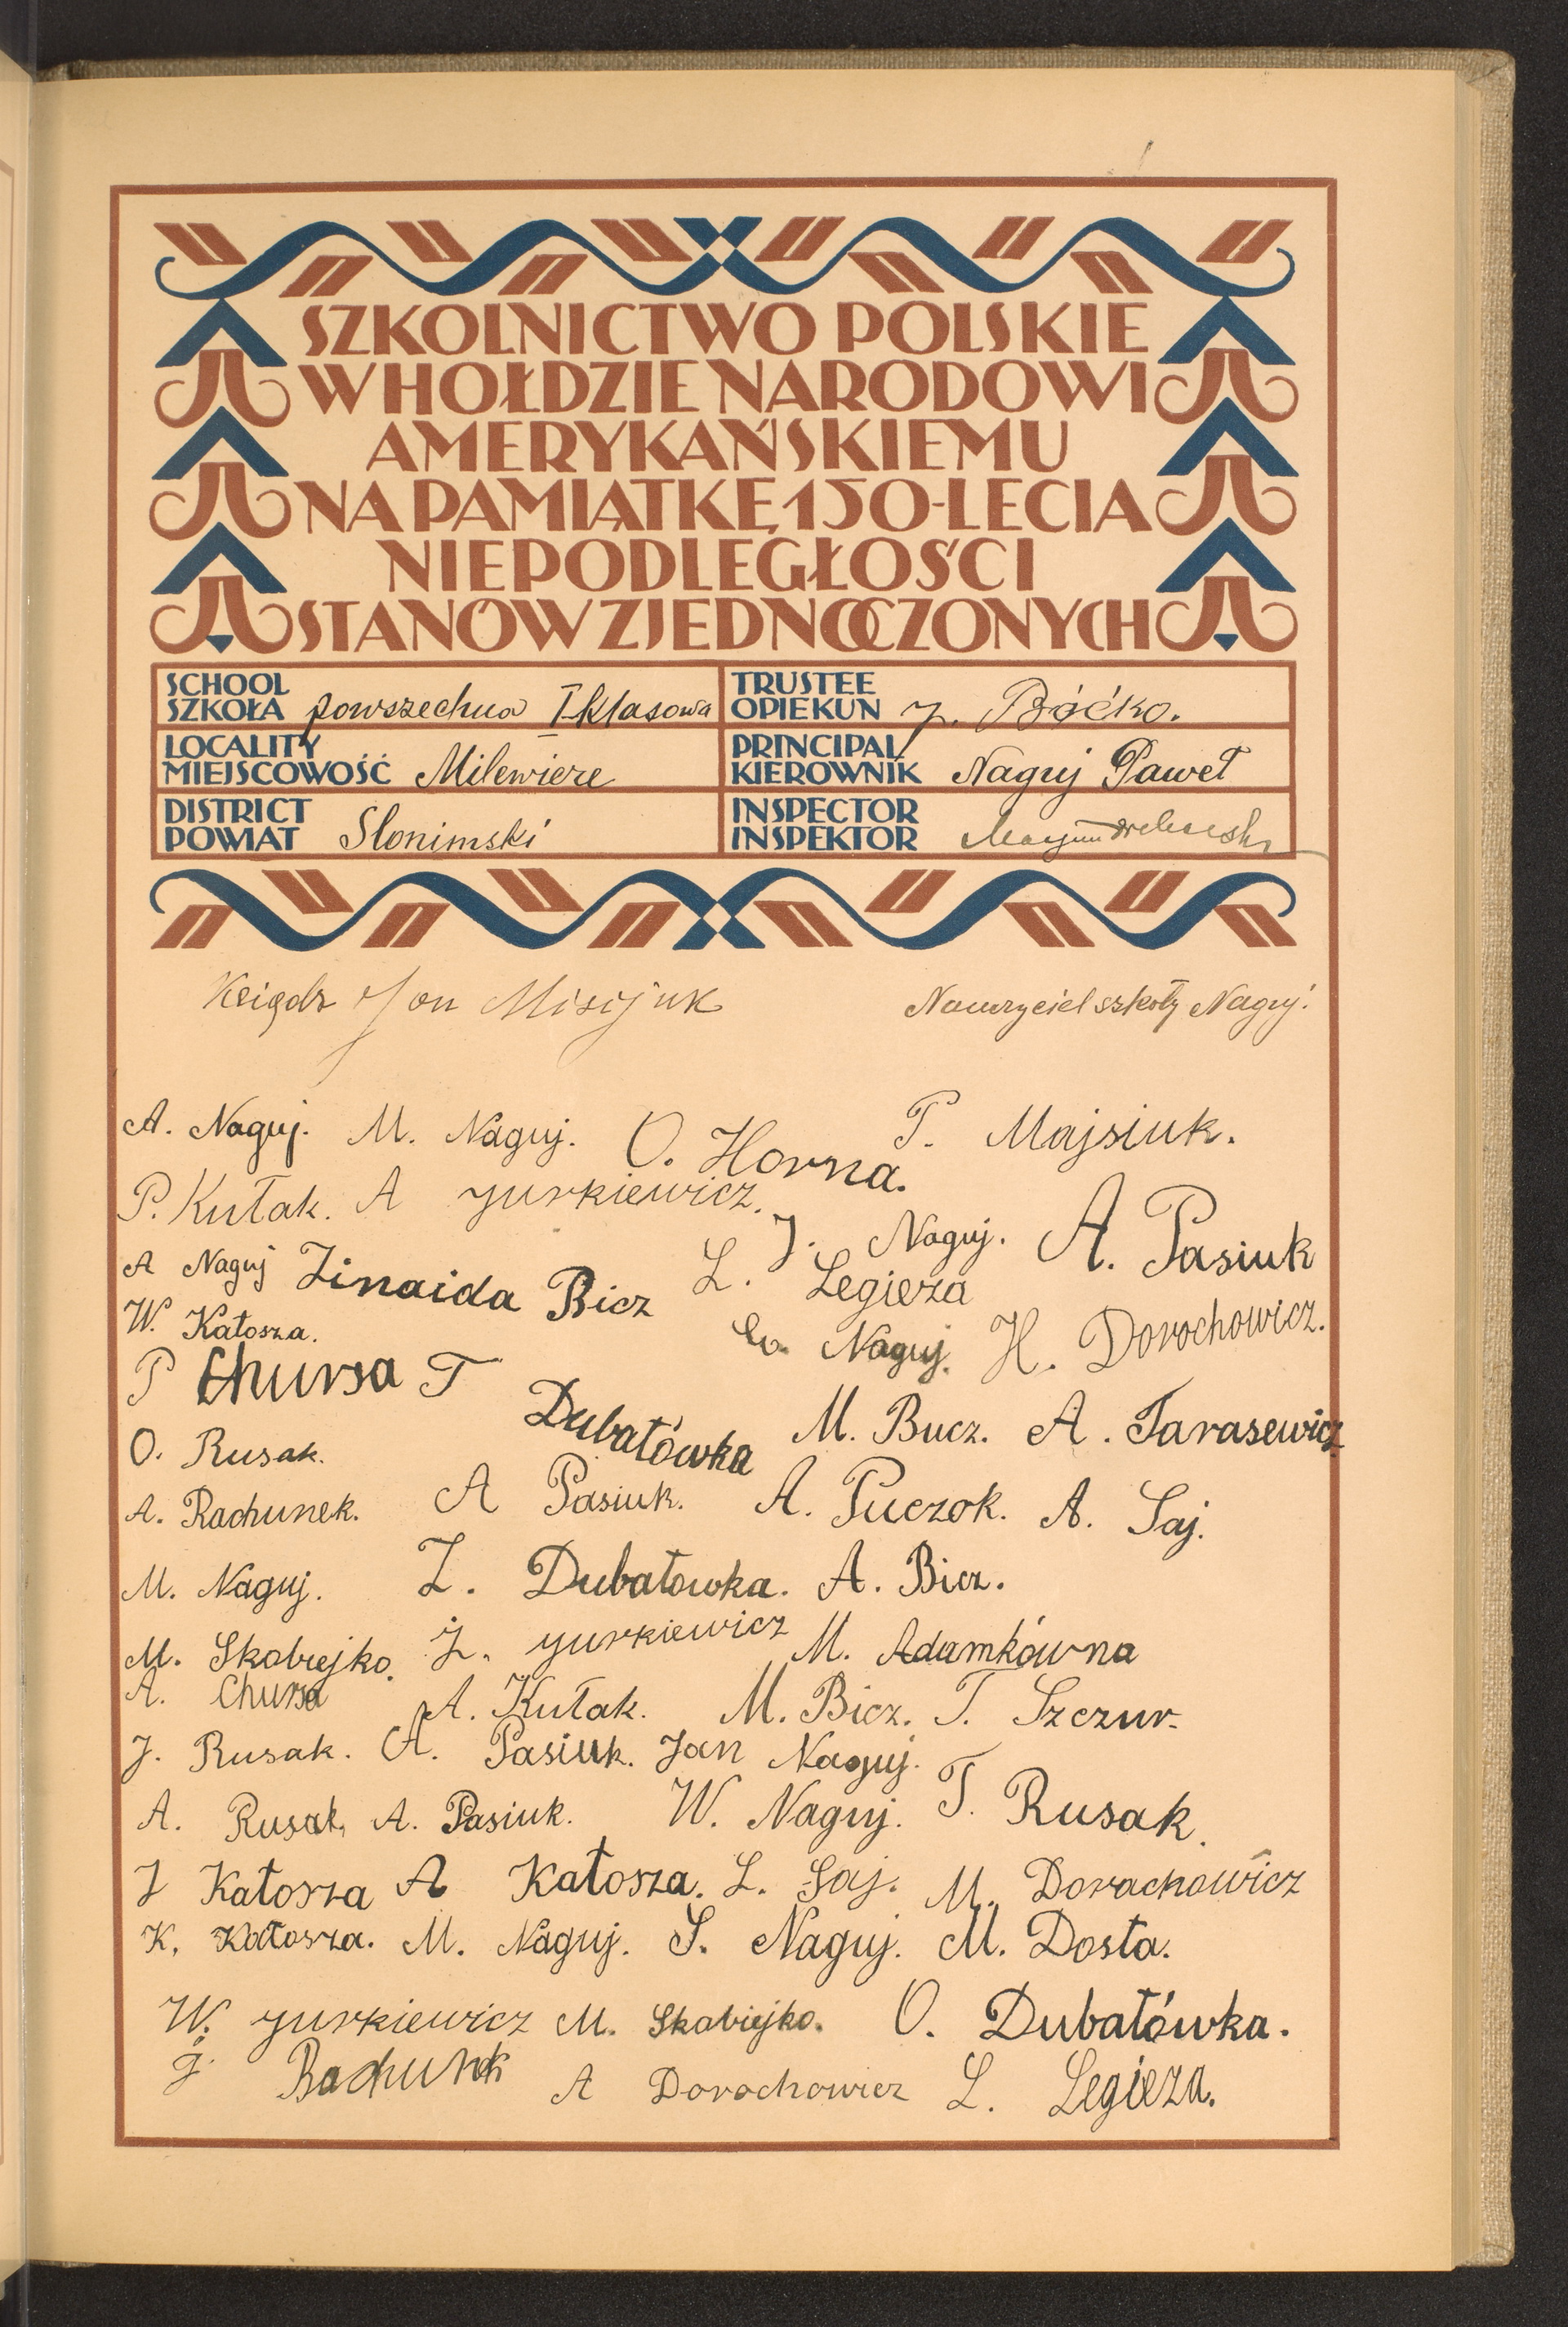 SZKOLNICTWO POLSKIE
W HOŁDZIE NARODOWI
AMERYKAŃSKIEMU
NA PAMIĄTKĘ 150-LECIA
NIEPODLEGŁOŚCI
STANÓW ZJEDNOCZONYCH
SCHOOL
SZKOŁA powszechna I-klasowa
TRUSTEE
OPIEKUN J. Boćko.
LOCALITY
MIEJSCOWOŚĆ Milewicze
PRINCIPAL
KIEROWNIK Naguj Paweł
DISTRICT
POWIAT Słonimski
INSPECTOR
INSPEKTOR
Ksiądz Jan Misijuk Nauczyciel szkoły Naguj.
A. Naguj. M. Naguj. O. Horna. P. Majsiuk.
P. Kułak. A Jurkiewicz. J. Naguj. A. Pasiuk
A Naguj Zinaida Bicz L. Legieza
W. Katosza. Naguj. H. Dorochowicz.
P Chursa T Dubatówka M. Bucz. A. Tarasewicz
O. Rusak.
A. Rachunek. A Pasiuk. A. Puczok. A. Saj.
M. Naguj. Z. Dubatowka. A. Bicz.
M. Skobiejko. Z. Jurkiewicz M. Adamkówna
A. Chursa A. Kułak. M. Bicz. T. Szczur.
J. Rusak. A. Pasiuk. Jan Naguj.
A. Rusak, A. Pasiuk. W. Naguj. T. Rusak.
J Katosza A Katosza. L. Saj. M. Dorachowicz
K. Katosza. M. Naguj. S. Naguj. M. Dosta.
W. Jurkiewicz M. Skobiejko. O. Dubatówka.
J. Rachunek A Dorochowicz L. Legieza.